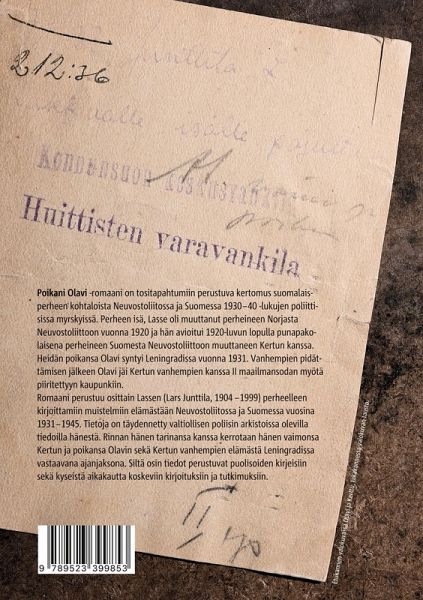 2 12:36
Konnunsuon keskusvankila
Huittisten varavankila
Poikani Olavi -romaani on tositapahtumiin perustuva kertomus suomalais-
perheen kohtaloista Neuvostoliitossa ja Suomessa 1930–40 -lukujen poliitti-
sissa myrskyissä. Perheen isä, Lasse oli muuttanut perheineen Norjasta
Neuvostoliittoon vuonna 1920 ja hän avioitui 1920-luvun lopulla punapako-
laisena perheineen Suomesta Neuvostoliittoon muuttaneen Kertun kanssa.
Heidän poikansa Olavi syntyi Leningradissa vuonna 1931. Vanhempien pidät-
tämisen jälkeen Olavi jäi Kertun vanhempien kanssa II maailmansodan myötä
piiritettyyn kaupunkiin.
Romaani perustuu osittain Lassen (Lars Junttila, 1904 –1999) perheelleen
kirjoittamiin muistelmiin elämästään Neuvostoliitossa ja Suomessa vuosina
1931–1945. Tietoja on täydennetty valtiollisen poliisin arkistoissa olevilla
tiedoilla hänestä. Rinnan hänen tarinansa kanssa kerrotaan hänen vaimonsa
Kertun ja poikansa Olavin sekä Kertun vanhempien elämästä Leningradissa
vastaavana ajanjaksona. Siltä osin tiedot perustuvat puolisoiden kirjeisiin
sekä kyseistä aikakautta koskeviin kirjoituksiin ja tutkimuksiin.
9 789523 399853